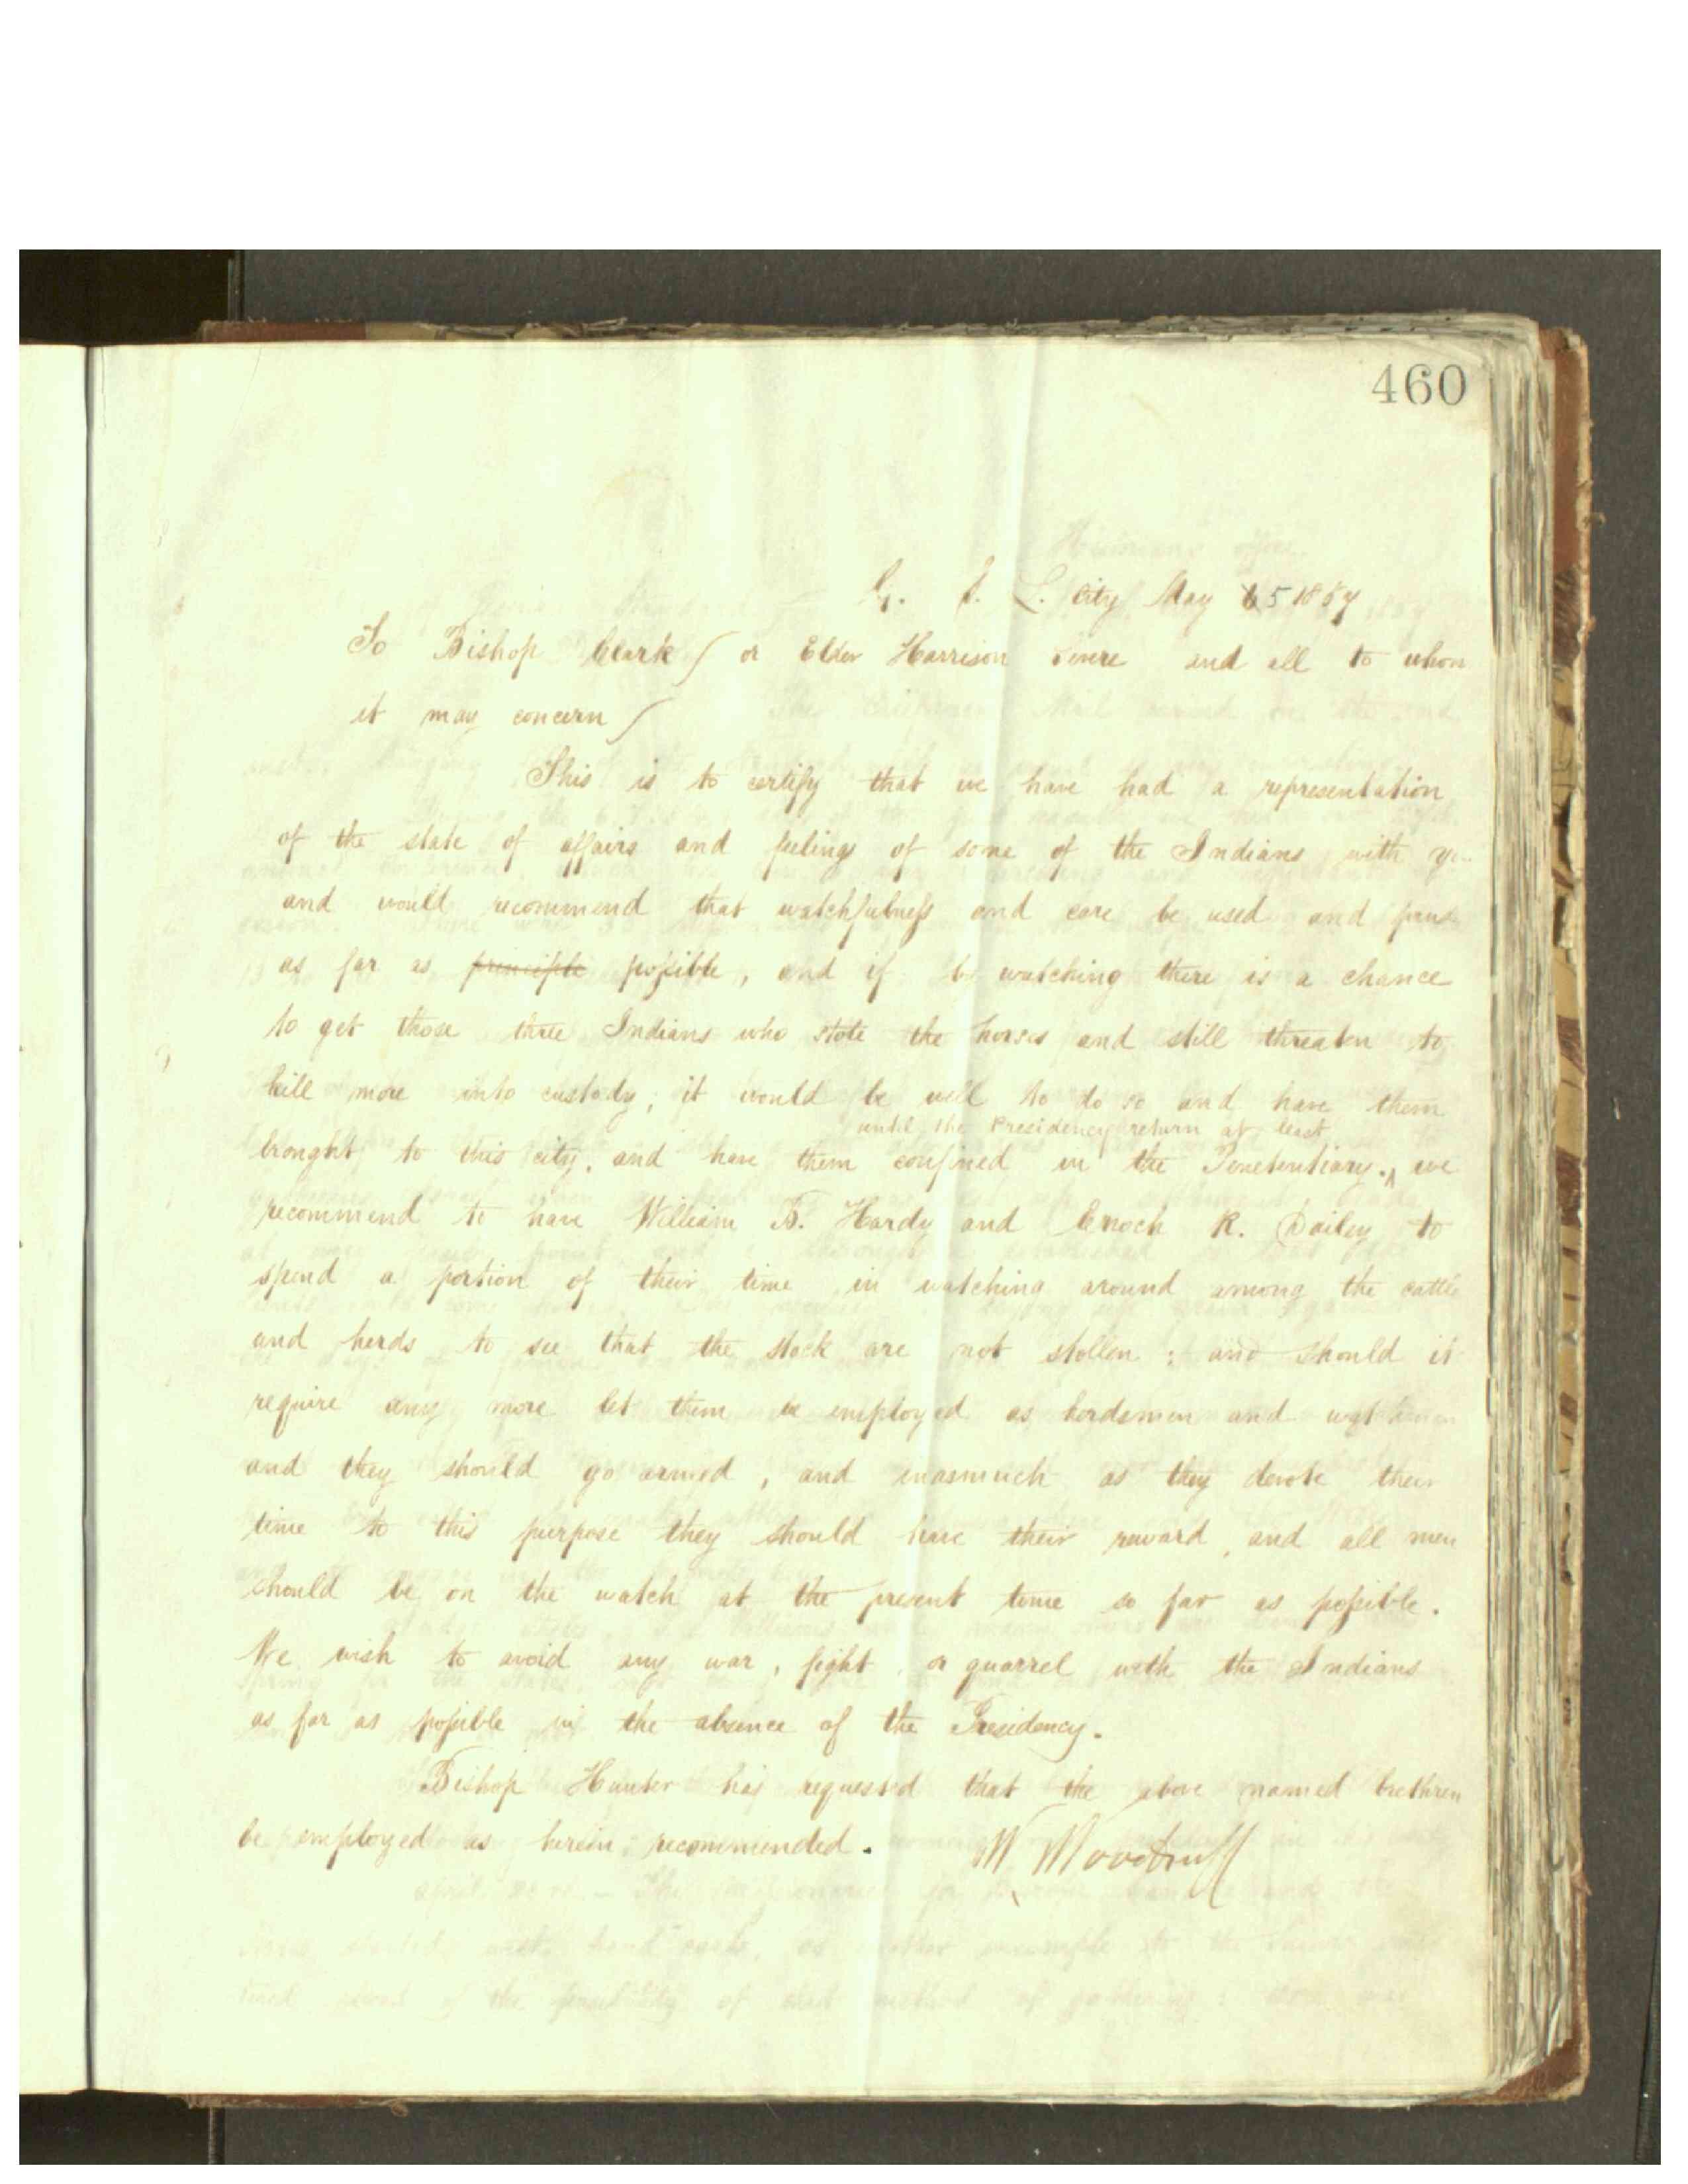 460
G. S. L. City May 5 1857
To Bishop Clark or Elder Harrison Severe and all to whom
it may concern
This is to certify that we have had a representation
of the state of affairs and feelings of some of the Indians with you
and would recommend that watchfulness and care be used and
as far as principle possible, and if by watching there is a chance
to get those three Indians who stole the horses and still threaten to
kill more into custody; it would be well to do so and have them
until the Presidency return at least
brought to this city, and have them confined in the Penetentiary. we
recommend to have William B. Hardy and Enoch R. Dailey to
spend a portion of their time in watching around among the cattle
and herds to see that the stock are not stollen; and should it
require any more let them be employed as herdsmen and watchmen
and they should go armed, and inasmuch as they devote their
time to this purpose they should have their reward, and all men
should be on the watch at the present time so far as possible.
We wish to avoid any war, fight, or quarrel with the Indians
as far as possible in the absence of the Presidency.
Bishop Hunter has requested that the above named brethren
be employed as herein recommended. W Woodruff